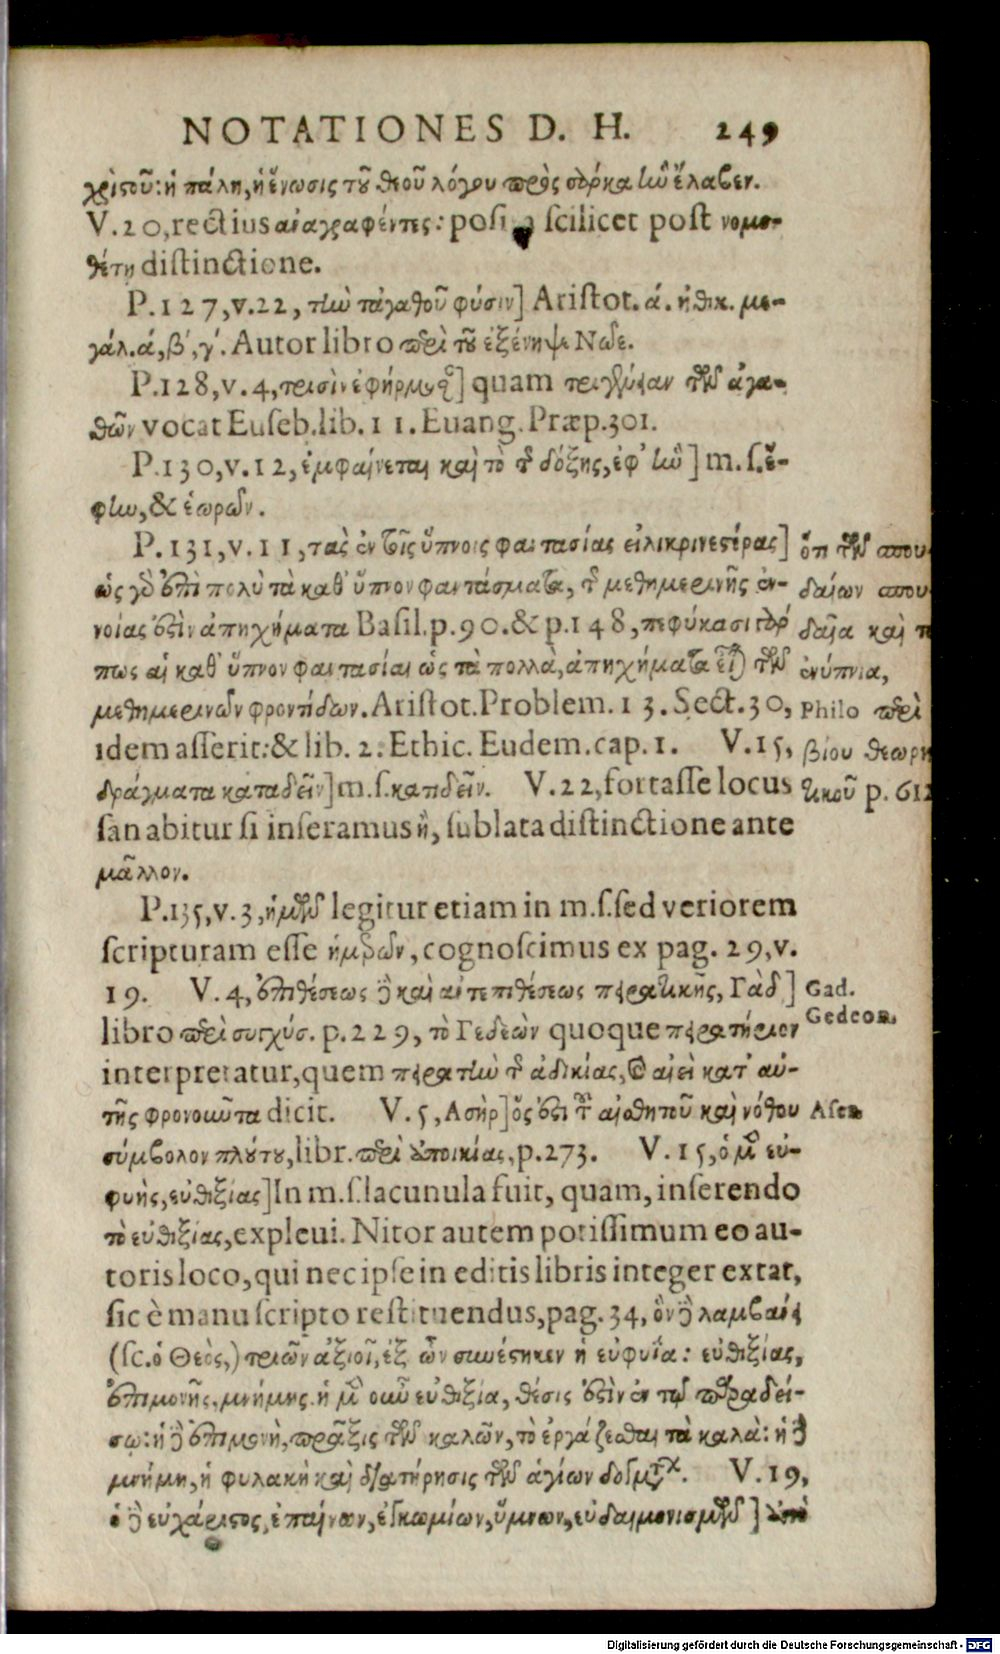 NOTATIONES D. H. 249
χριστοῦ: ἡ πάλη, ἡ ἕνωσις τοῦ θεοῦ λόγου πρὸς σάρκα ἣν ἔλαβεν.
V. 20, rectius ἀναγραφέντες: scilicet post νομο-
θέτῃ distinctione.
P. 127, v. 22, τὴν τἀγαθοῦ φύσιν] Aristot. ά. ἠθικ. με-
γάλ. ά, β΄, γ΄. Autor libro περὶ τοῦ ἐξένηψε Νῶε.
P. 128, v. 4, τρισὶν quam τῶν ἀγα-
θῶν vocat Euseb. lib. 11. Euang. Præp. 301.
P. 130, v. 12, ἐμφαίνεται καὶ τὸ τῆς δόξης, ἐφ᾽ ἣν] m. s. ἔ-
φην, & ἑωρῶν.
P. 131, v. 11, τὰς ἐν τοῖς ὕπνοις φαντασίας εἰλικρινεστέρας]
ὡς γὰρ ἐπὶ πολὺ τὰ καθ᾽ ὕπνον φαντάσματα, τῆς μεθημερινῆς ἐν-
νοίας ἐστὶν ἀπηχήματα Basil. p. 90. & p. 148, πεφύκασι γάρ
πως αἱ καθ᾽ ὕπνον φαντασίαι ὡς τὰ πολλὰ, ἀπηχήματα εἶναι τῶν
μεθημερινῶν φροντίδων. Aristot. Problem. 13. Sect. 30,
idem asserit: & lib. 2. Ethic. Eudem. cap. 1. V. 15,
δράγματα καταδεῖν] m. s. κατιδεῖν. V. 22, fortasse locus
sanabitur si inseramus ἢ, sublata distinctione ante
μᾶλλον.
ὅτι τῶν σπου-
δαίων σπου-
δαῖα καὶ
ἐνύπνια,
Philo περὶ
βίου θεωρη
τικοῦ p. 612
P. 135, v. 3, ἡμῶν legitur etiam in m. s. sed veriorem
scripturam esse ἡμερῶν, cognoscimus ex pag. 29, v.
19. V. 4, ἐπιθέσεως δὲ καὶ ἀντεπιθέσεως πειρατικῆς, Γὰδ]
Gad.
libro περὶ συγχύσ. p. 229, τὸ Γεδεὼν quoque πειρατήριον
Gedeon.
interpretatur, quem πειρατὴν τῆς ἀδικίας, καὶ ἀεὶ κατ᾽ αὐ-
τῆς φρονοῦντα dicit. V. 5, Ἀσὴρ] ὅς ἐστι τοῦ αἰσθητοῦ καὶ νόθου
Aser.
σύμβολον πλούτου, libr. περὶ ἀποικίας, p. 273. V. 15, ὁ μὲν εὐ-
φυὴς, εὐθιξίας] In m. s. lacunula fuit, quam, inserendo
τὸ εὐθιξίας, expleui. Nitor autem potissimum eo au-
toris loco, qui nec ipse in editis libris integer extat,
sic è manuscripto restituendus, pag. 34, ὃν δὲ λαμβάνει
(sc. ὁ Θεὸς,) τριῶν ἀξιοῖ, ἐξ ὧν συνέστηκεν ἡ εὐφυΐα: εὐθιξίας,
ἐπιμονῆς, μνήμης. ἡ μὲν οὖν εὐθιξία, θέσις ἐστὶν ἐν τῷ παραδεί-
σῳ: ἡ δὲ ἐπιμονὴ, πρᾶξις τῶν καλῶν, τὸ ἐργάζεσθαι τὰ καλὰ: ἡ δὲ
μνήμη, ἡ φυλακὴ καὶ διατήρησις τῶν ἁγίων δογμάτων. V. 19,
ὁ δὲ εὐχάριστος, ἐπαίνων, ἐγκωμίων, ὕμνων, εὐδαιμονισμῶν] ἀπὸ
Digitalisierung gefördert durch die Deutsche Forschungsgemeinschaft - DFG